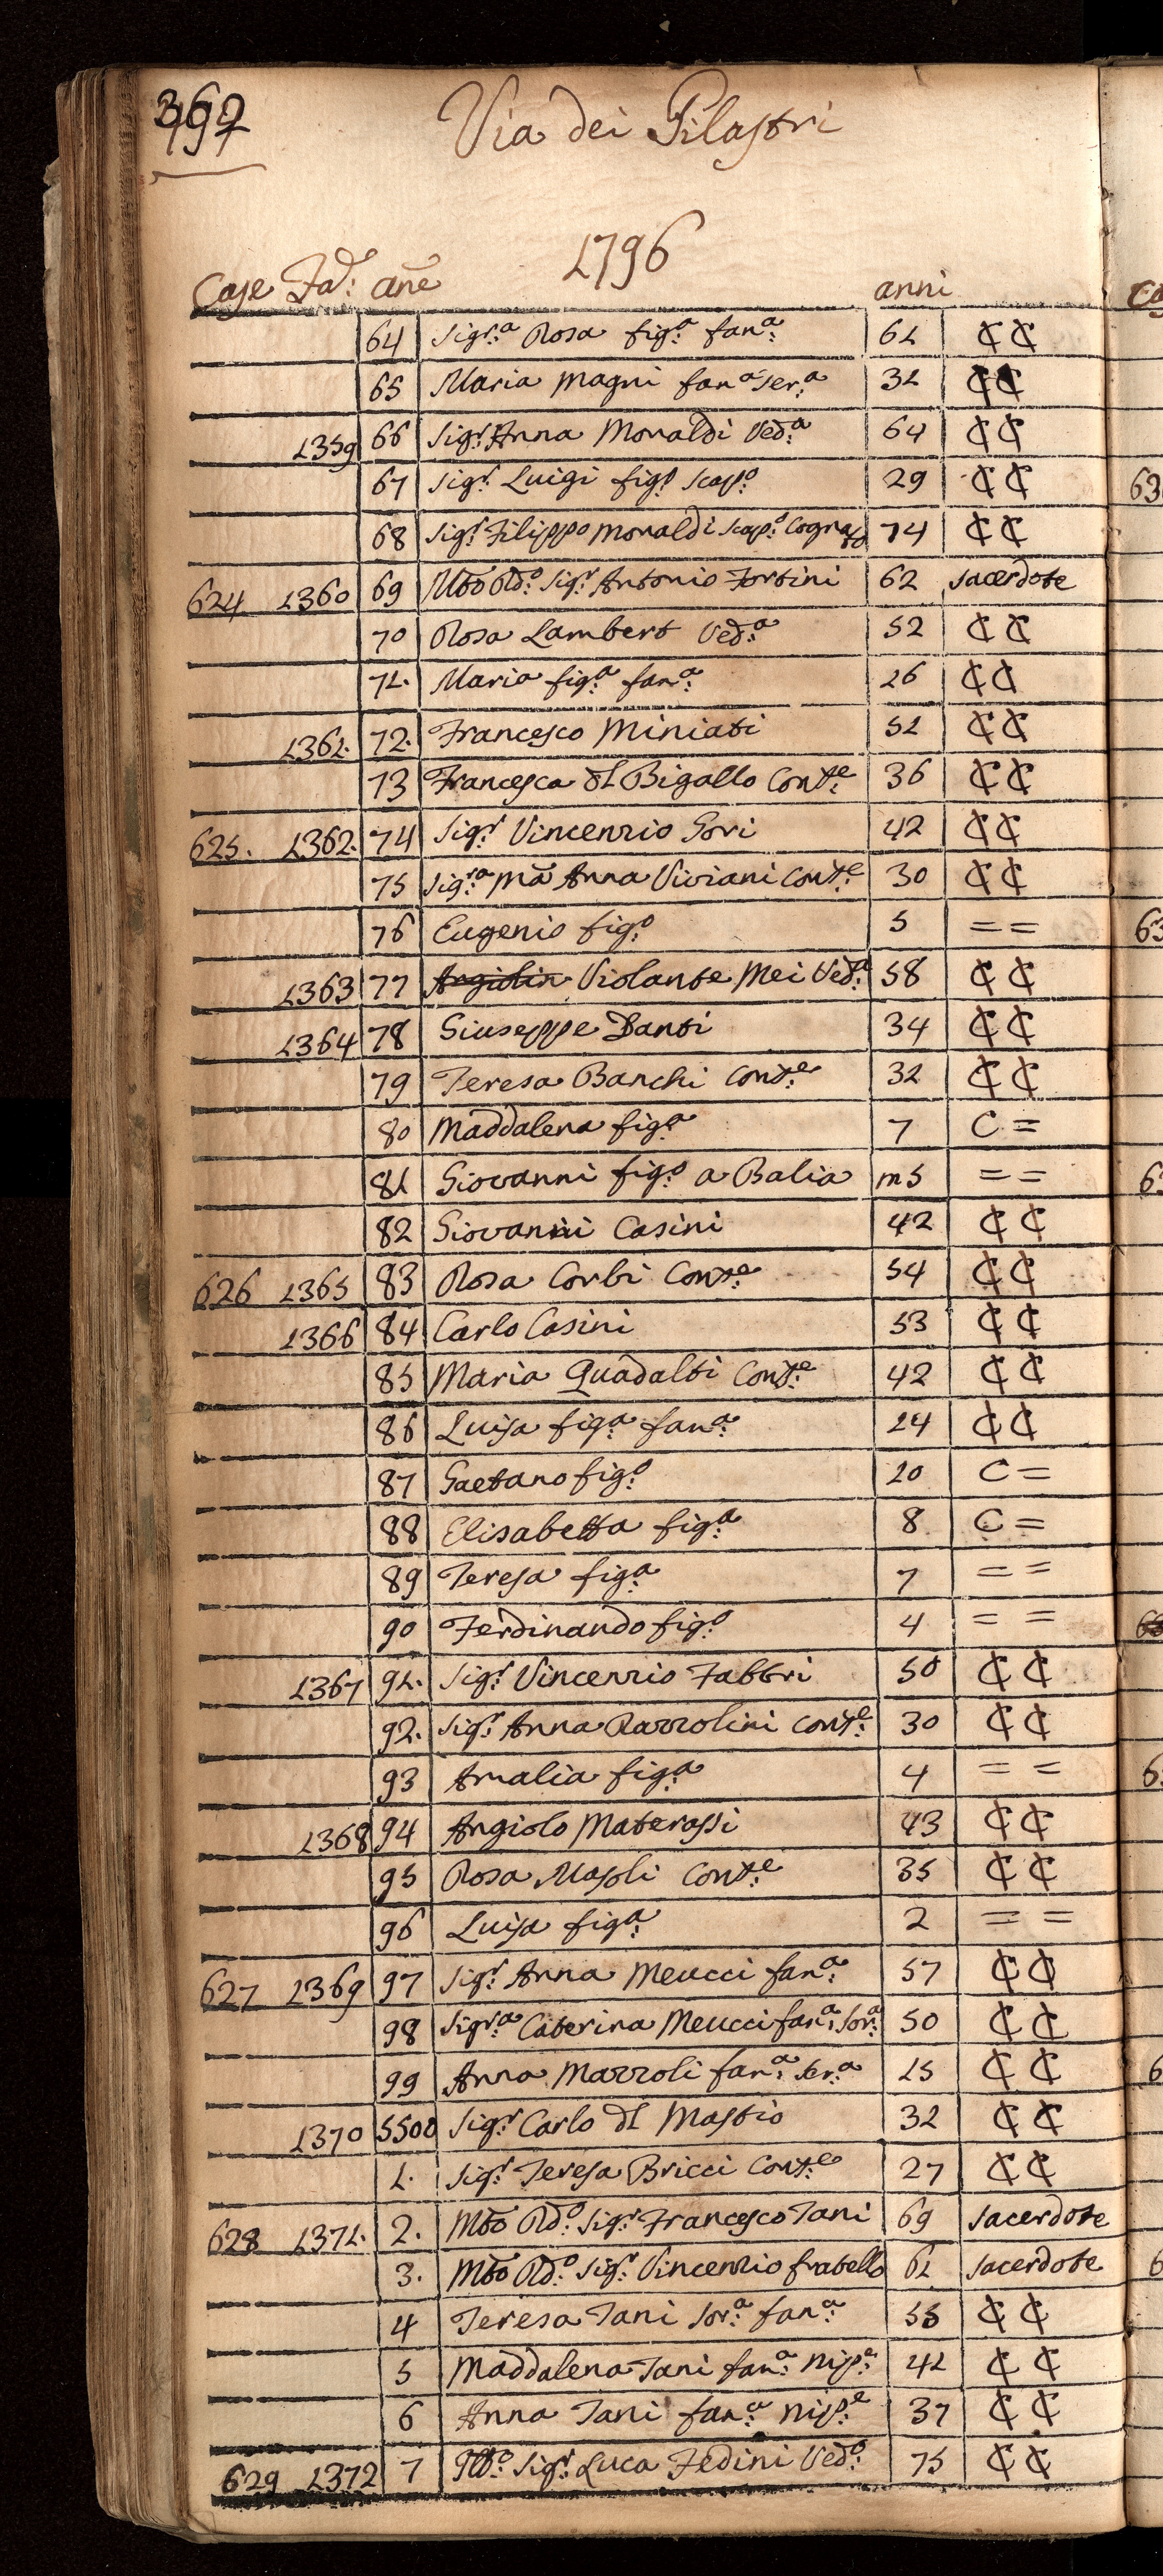 Via dei Pilastri
1796
Case Fad: añe anni
64 Sigr:a Rosa fig:a fan:a 61 ₵ ₵
65 Maria Magni fan:a ser:a 31 ₵ ₵
1359 66 Sig:r Anna Monaldi Ved:a 64 ₵ ₵
67 Sig:r Luigi fig:o scap:o 29 ₵ ₵
68 Sig:r Filippo Monaldi scap:o Cognato 74 ₵ ₵
624 1360 69 Mto Rd:o Sig:r Antonio Fortini 62 sacerdote
70 Rosa Lambert Ved:a 52 ₵ ₵
71. Maria fig:a fan:a 26 ₵ ₵
1361. 72. Francesco Miniati 51 ₵ ₵
73 Francesca dl Bigallo Cont:e 36 ₵ ₵
625. 1362. 74 Sig:r Vincenzio Gori 42 ₵ ₵
75 Sigr:a Mã Anna Viviani Cont:e 30 ₵ ₵
76 Eugenio fig:o 5 = =
1363 77 Violante Mei Ved:a 58 ₵ ₵
1364 78 Giuseppe Danti 34 ₵ ₵
79 Teresa Banchi Cont:e 32 ₵ ₵
80 Maddalena fig:a 7 C =
81 Giovanni fig:o a Balia m5 = =
82 Giovanni Casini 42 ₵ ₵
626 1365 83 Rosa Corbi Cons:e 54 ₵ ₵
1366 84 Carlo Casini 53 ₵ ₵
85 Maria Guadalti Cont:e 42 ₵ ₵
86 Luisa fig:a fan:a 24 ₵ ₵
87 Gaetano fig:o 10 C =
88 Elisabetta fig:a 8 C =
89 Teresa fig:a 7 = =
90 Ferdinando fig:o 4 = =
1367 91. Sig:r Vincenzio Fabbri 50 ₵ ₵
92. Sig:r Anna Razzolini Cont:e 30 ₵ ₵
93 Amalia fig:a 4 = =
1368 94 Angiolo Materassi 43 ₵ ₵
95 Rosa Masoli Cont:e 35 ₵ ₵
96 Luisa fig:a 2 = =
627 1369 97 Sig:r Anna Meucci fan:a 57 ₵ ₵
98 Sigr:a Caterina Meucci fan:a sor:a 50 ₵ ₵
99 Anna Mazzoli fan:a ser:a 25 ₵ ₵
1370 5500 Sig:r Carlo dl Mastio 32 ₵ ₵
1. Sig:r Teresa Bricci Cont:e 27 ₵ ₵
628 1371. 2. Mto Rd:o Sig:r Francesco Tani 69 sacerdote
3. Mto Rd:o Sig:r Vincenzio fratello 61 sacerdote
4 Teresa Tani sor:a fan:a 55 ₵ ₵
5 Maddalena Tani fan:a nip:e 41 ₵ ₵
6 Anna Tani fan:a nip:e 37 ₵ ₵
629 1372 7 Sig:r Luca Fedini Ved:o 75 ₵ ₵